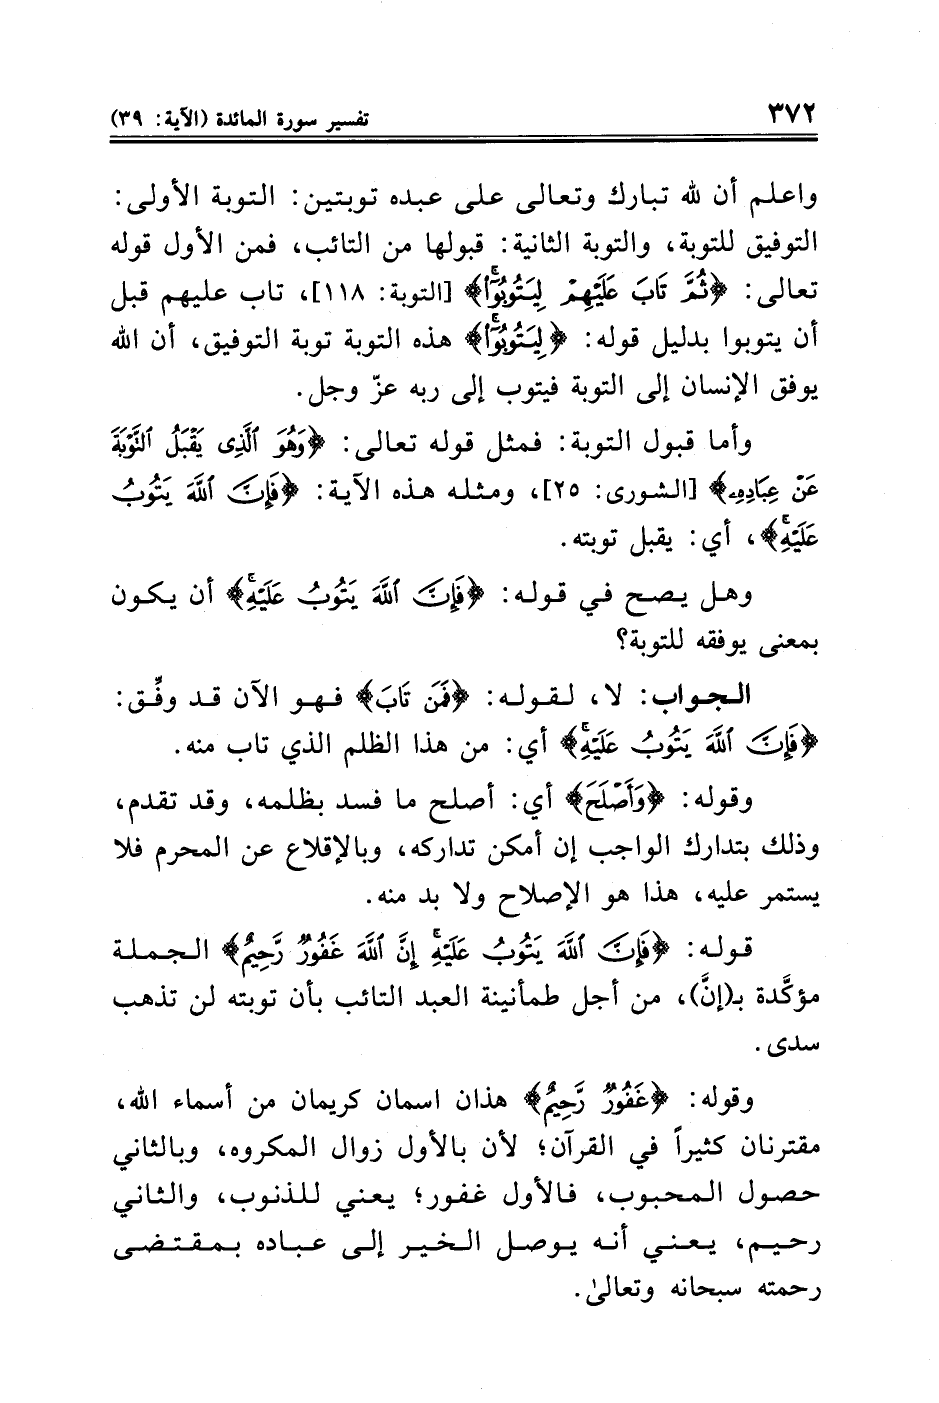 ٣٧٢
تفسير سورة المائدة (الآية: ٣٩)
واعلم أن لله تبارك وتعالى على عبده توبتين: التوبة الأولى:
التوفيق للتوبة، والتوبة الثانية: قبولها من التائب، فمن الأول قوله
تعالى: ﴿ثُمَّ تَابَ عَلَيْهِمْ لِيَتُوبُوٓا۟ۚ﴾ [التوبة: ١١٨]، تاب عليهم قبل
أن يتوبوا بدليل قوله: ﴿لِيَتُوبُوٓا۟ۚ﴾ هذه التوبة توبة التوفيق، أن الله
يوفق الإنسان إلى التوبة فيتوب إلى ربه عزّ وجل.
وأما قبول التوبة: فمثل قوله تعالى: ﴿وَهُوَ ٱلَّذِى يَقْبَلُ ٱلتَّوْبَةَ
عَنْ عِبَادِهِۦ﴾ [الشورى: ٢٥]، ومثله هذه الآية: ﴿فَإِنَّ ٱللَّهَ يَتُوبُ
عَلَيْهِۚ﴾، أي: يقبل توبته.
وهل يصح في قوله: ﴿فَإِنَّ ٱللَّهَ يَتُوبُ عَلَيْهِۚ﴾ أن يكون
بمعنى يوفقه للتوبة؟
الجواب: لا، لقوله: ﴿فَمَن تَابَ﴾ فهو الآن قد وفِّق:
﴿فَإِنَّ ٱللَّهَ يَتُوبُ عَلَيْهِۚ﴾ أي: من هذا الظلم الذي تاب منه.
وقوله: ﴿وَأَصْلَحَ﴾ أي: أصلح ما فسد بظلمه، وقد تقدم،
وذلك بتدارك الواجب إن أمكن تداركه، وبالإقلاع عن المحرم فلا
يستمر عليه، هذا هو الإصلاح ولا بد منه.
قوله: ﴿فَإِنَّ ٱللَّهَ يَتُوبُ عَلَيْهِۚ إِنَّ ٱللَّهَ غَفُورٌ رَّحِيمٌ﴾ الجملة
مؤكَّدة بـ(إنَّ)، من أجل طمأنينة العبد التائب بأن توبته لن تذهب
سدى.
وقوله: ﴿غَفُورٌ رَّحِيمٌ﴾ هذان اسمان كريمان من أسماء الله،
مقترنان كثيراً في القرآن؛ لأن بالأول زوال المكروه، وبالثاني
حصول المحبوب، فالأول غفور؛ يعني للذنوب، والثاني
رحيم، يعني أنه يوصل الخير إلى عباده بمقتضى
رحمته سبحانه وتعالىٰ.